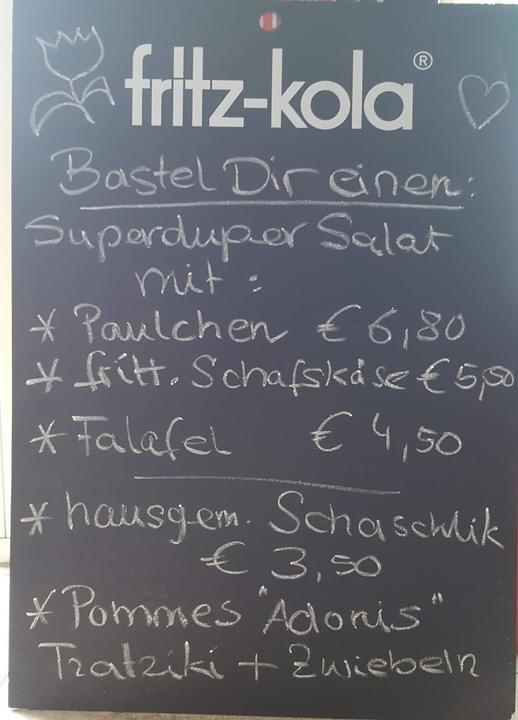 fritz-kola®
Bastel Dir einen:
Superduper Salat
mit:
* Paulchen € 6,80
* fritt. Schafskäse € 5,80
* Falafel € 4,50
* hausgem. Schaschlik
€ 3,50
* Pommes "Adonis"
Tzatziki + Zwiebeln